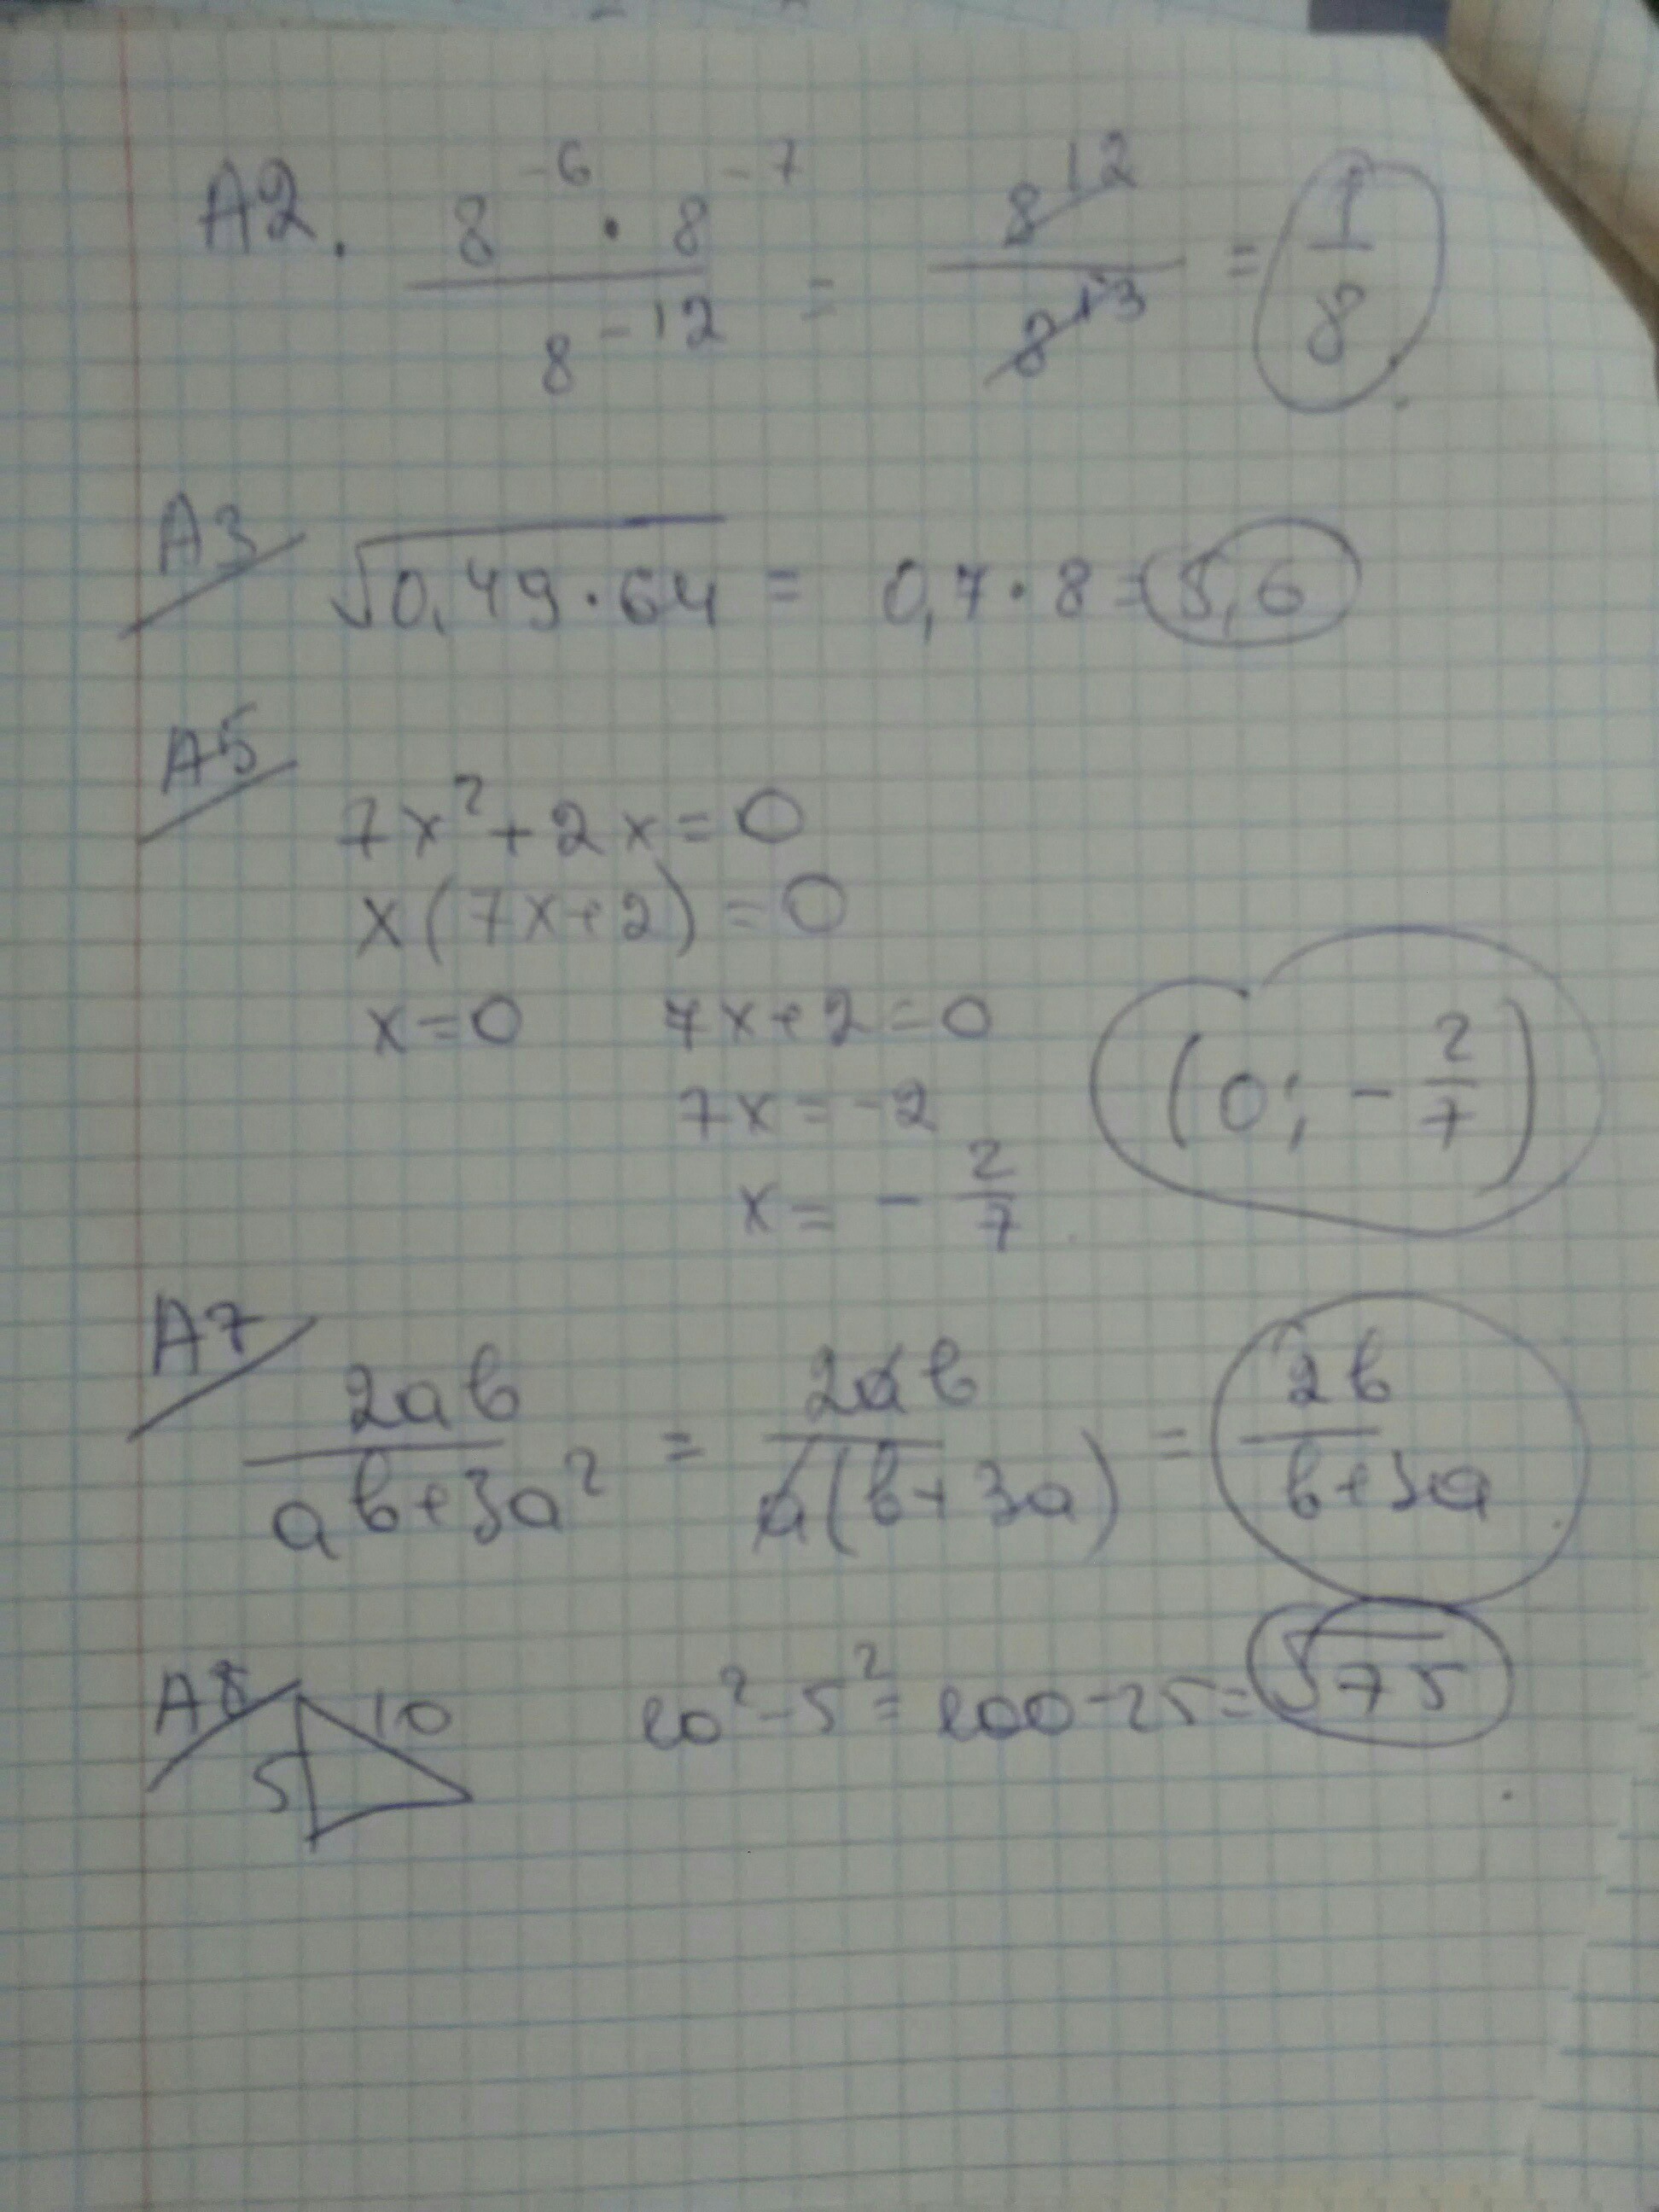 A2. (8^-6 · 8^-7) / 8^-12 = 8^12 / 8^13 = 1/8
A3 √(0,49 · 64) = 0,7 · 8 = 5,6
A5
7x² + 2x = 0
x(7x+2) = 0
x = 0 7x+2 = 0
7x = -2
x = - 2/7
(0; - 2/7)
A7
2ab / (ab+3a²) = 2ab / (a(b+3a)) = 2b / (b+3a)
A8 10 10² - 5² = 100 - 25 = √75
5